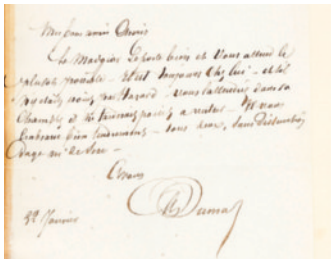 Mes bons amis
Le Madgyar se porte bien et vous attend le
plus tôt possible - Il est toujours chez lui - et s'il
n'y était point par hasard - vous l'attendriez dans sa
chambre et ne tarderait point à rentrer - Je vous
embrasse bien tendrement - tous deux, sans distinction
d'âge ni de sexe -
A vous
A Dumas
22 Janvier